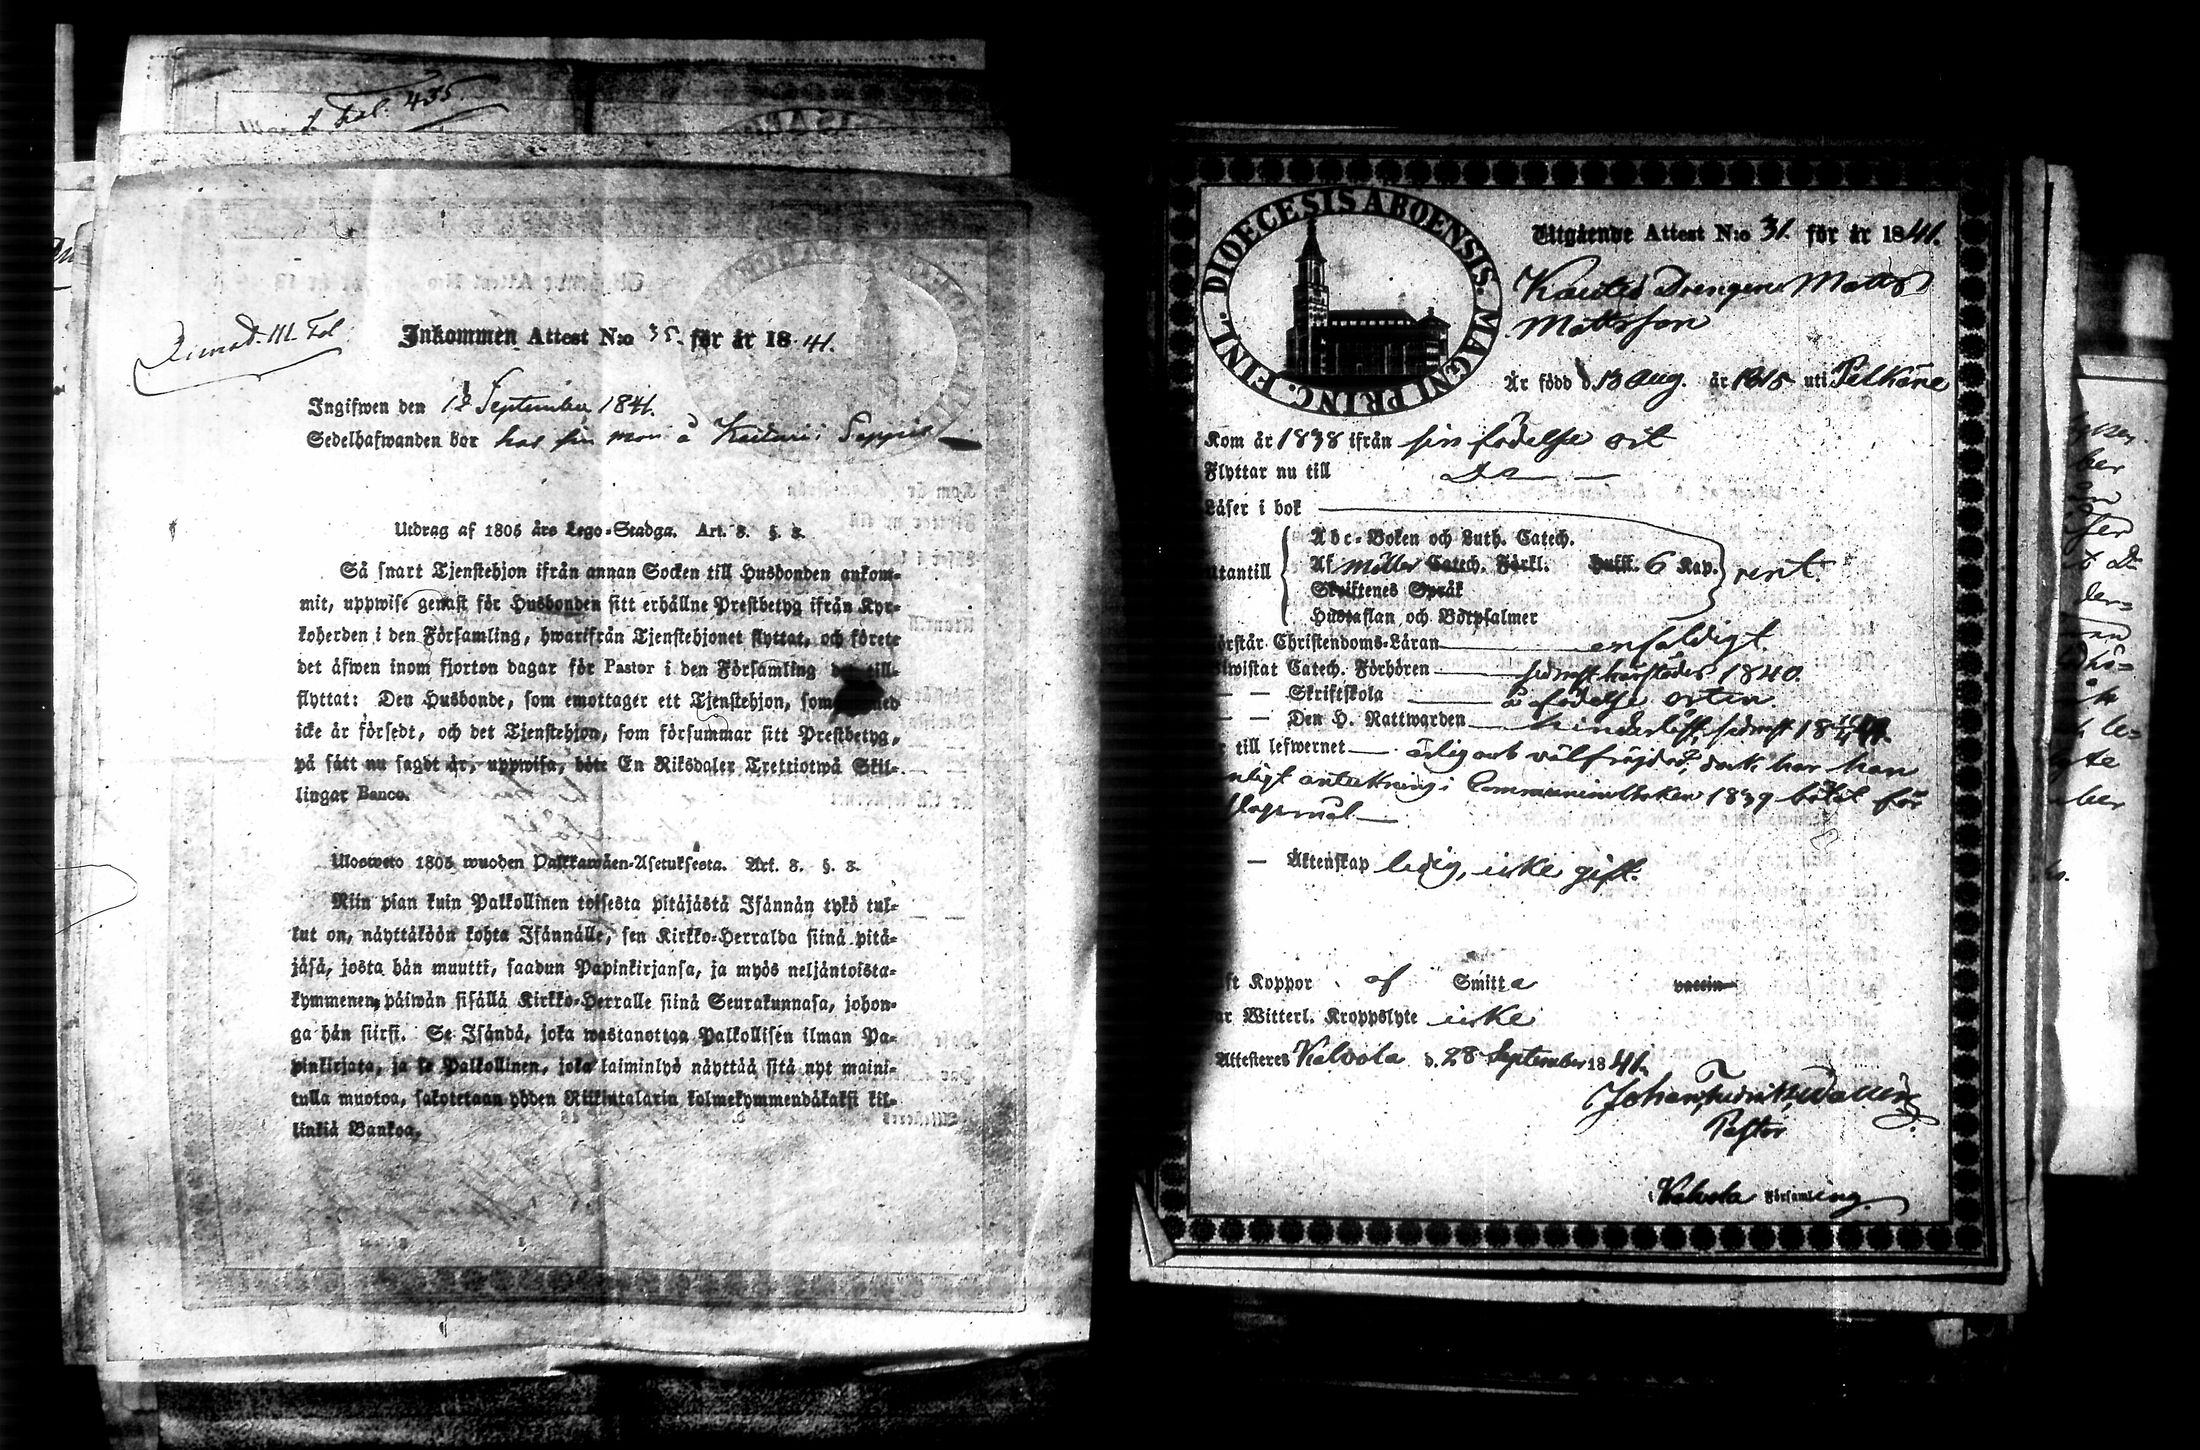 d. Fol. 435.
Inkommen Attest N:o 35. för år 1841.
Ingifwen den 12 September 1841.
Sedelhafwanden bor hos sin mor å
Utdrag af 1805 års Lego-Stadga. Art. 8. §. 2.
Så snart Tjenstehjon ifrån annan Socken till Husbonden ankom-
mit, uppwise genast för Husbonden sitt erhållne Prestbetyg ifrån Kyr-
koherden i den Församling, hwarifrån Tjenstehjonet flyttat, och förete
det äfwen inom fjorton dagar för Pastor i den Församling till-
flyttat: Den Husbonde, som emottager ett Tjenstehjon, som
icke är försedt, och det Tjenstehjon, som försummar sitt Prestbetyg,
på sätt nu sagdt är, uppwisa, böte En Riksdaler Trettiotwå Skil-
lingar Banco.
Uloswéto 1805 wuoden Palkkawäen-Asetuksesta. Art. 8. §. 2.
Niin pian kuin Palkollinen toisesta pitäjästä Isännän tykö tul-
kut on, näyttäköön kohta Isännälle, sen Kirkko-Herralda siinä pitä-
jäsä, josta hän muutti, saadun Papinkirjansa, ja myös neljäntoista-
kymmenen päiwän sisällä Kirkko-Herralle siinä Seurakunnasa, johon-
ga hän siirsi. Se Isändä, joka wastanottaa Palkollisen ilman Pa-
pinkirjata, ja se Palkollinen, joka laiminlyö näyttää sitä nyt maini-
tulla muotoa, sakotetaan yhden Riikintalarin kolmekymmendäkaksi kil-
linkiä Bankoa.
DIOECESIS ABOENSIS. MAGNI PRINC. FINL.
Utgående Attest N:o 31. för år 1841.
Drengen Matts
Mattsson
Är född d. 13 Aug. år 1815 uti Pelkäne
Kom år 1838 ifrån sin födelse ort
Flyttar nu till
Läser i bok
Abc-Boken och Luth. Catech.
utantill Af Möller Catech. Förkl. Hufst. 6 Kap. rent
Skriftenes Språk
Hustaflan och Botpsalmer
örstår Christendoms-Läran enfaldigt.
iwistat Catech. Förhören sednast härstädes 1840.
— — Skriftskola å födelse orten
— — Den H. Nattwarden sednast 18
till lefwernet — ärlig och välfrejdad, dock har han
nligt anteckning i Communionboken 1839 bötat för
slagsmål —
— Äktenskap ledig, icke gift.
ft Koppor af Smitta vaccin
ar Witterl. Kroppslyte icke
Attesteres Kalvola d. 28 September 1841.
Pastor
i Kalvola Församling.